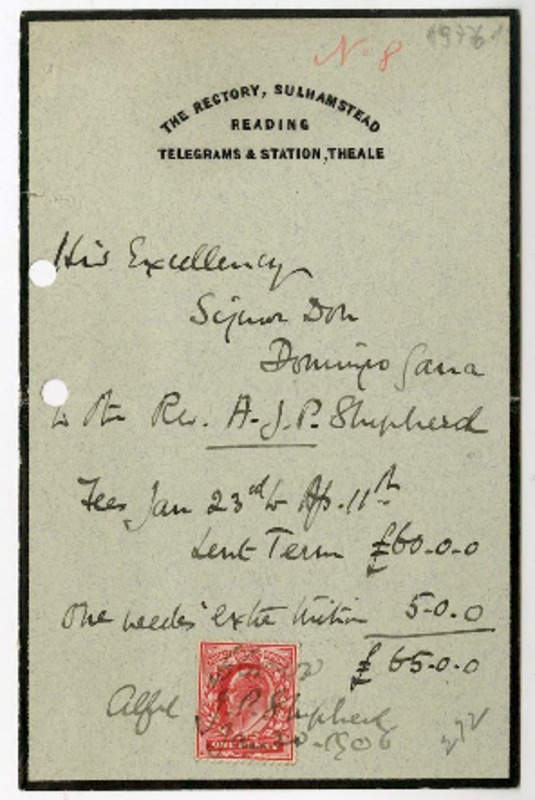 No 8
THE RECTORY, SULHAMSTEAD
READING
TELEGRAMS & STATION, THEALE
His Excellency
Signor Don
Domingo Gana
to the Rev. A. J. P. Shepherd
Fees Jan 23rd to Ap. 11th
Lent Term £60-0-0
One weeks' extra tuition 5-0.0
£65-0-0
Alfred J. P. Shepherd
1906